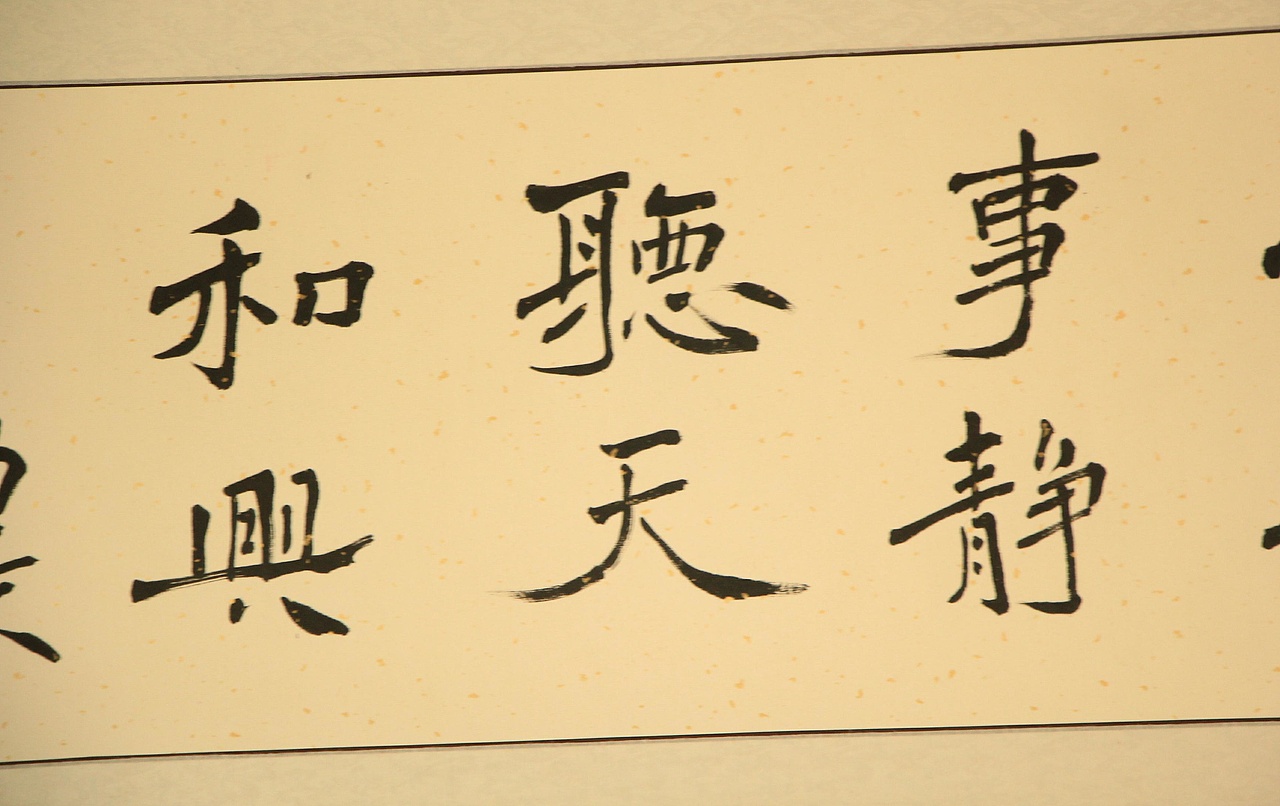 事静
聽天
和興